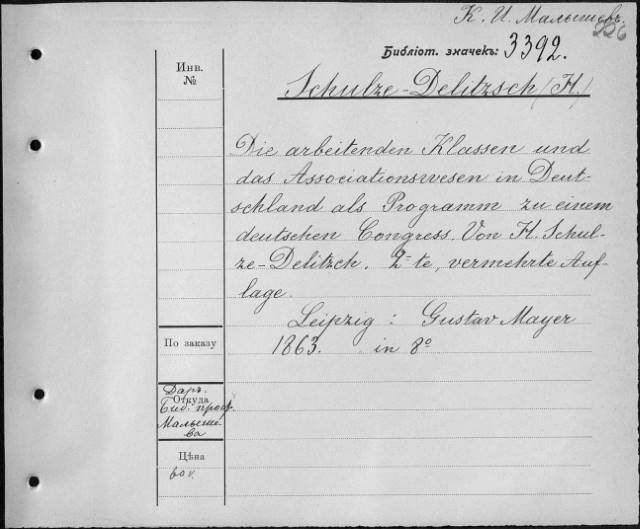 К. И. Малышевъ.
Библіот. значекъ: 3392.
Инв.
№
Schulze-Delitzsch (H.)
Die arbeitenden Klassen und
das Associationswesen in Deut-
schland als Programm zu einem
deutschen Congress. Von H. Schul-
ze-Delitzch. 2-te, vermehrte Auf-
lage.
Leipzig: Gustav Mayer
1863. in 8º
По заказу
Даръ
Откуда
Биб. проф.
Малыше-
ва
Цѣна